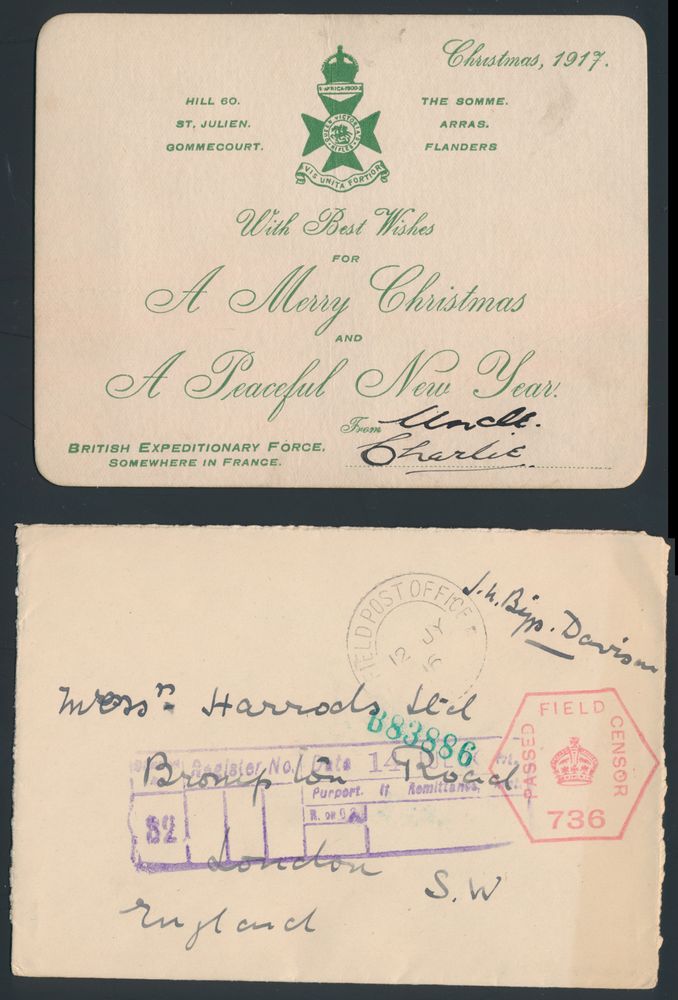 Christmas, 1917.
S. AFRICA 1900-2
QUEEN VICTORIA'S RIFLES
VIS UNITA FORTIOR
HILL 60.
ST. JULIEN.
GOMMECOURT.
THE SOMME.
ARRAS.
FLANDERS
With Best Wishes
FOR
A Merry Christmas
AND
A Peaceful New Year.
From Uncle.
Charlie
BRITISH EXPEDITIONARY FORCE,
SOMEWHERE IN FRANCE.
FIELD POST OFFICE
12 JY 16
Davison
Messrs Harrods Ltd
B83886
Register No. Date 14
Brompton Road
Purport. If Remittance,
R. or O.
82
London
S.W
England
PASSED FIELD CENSOR
736